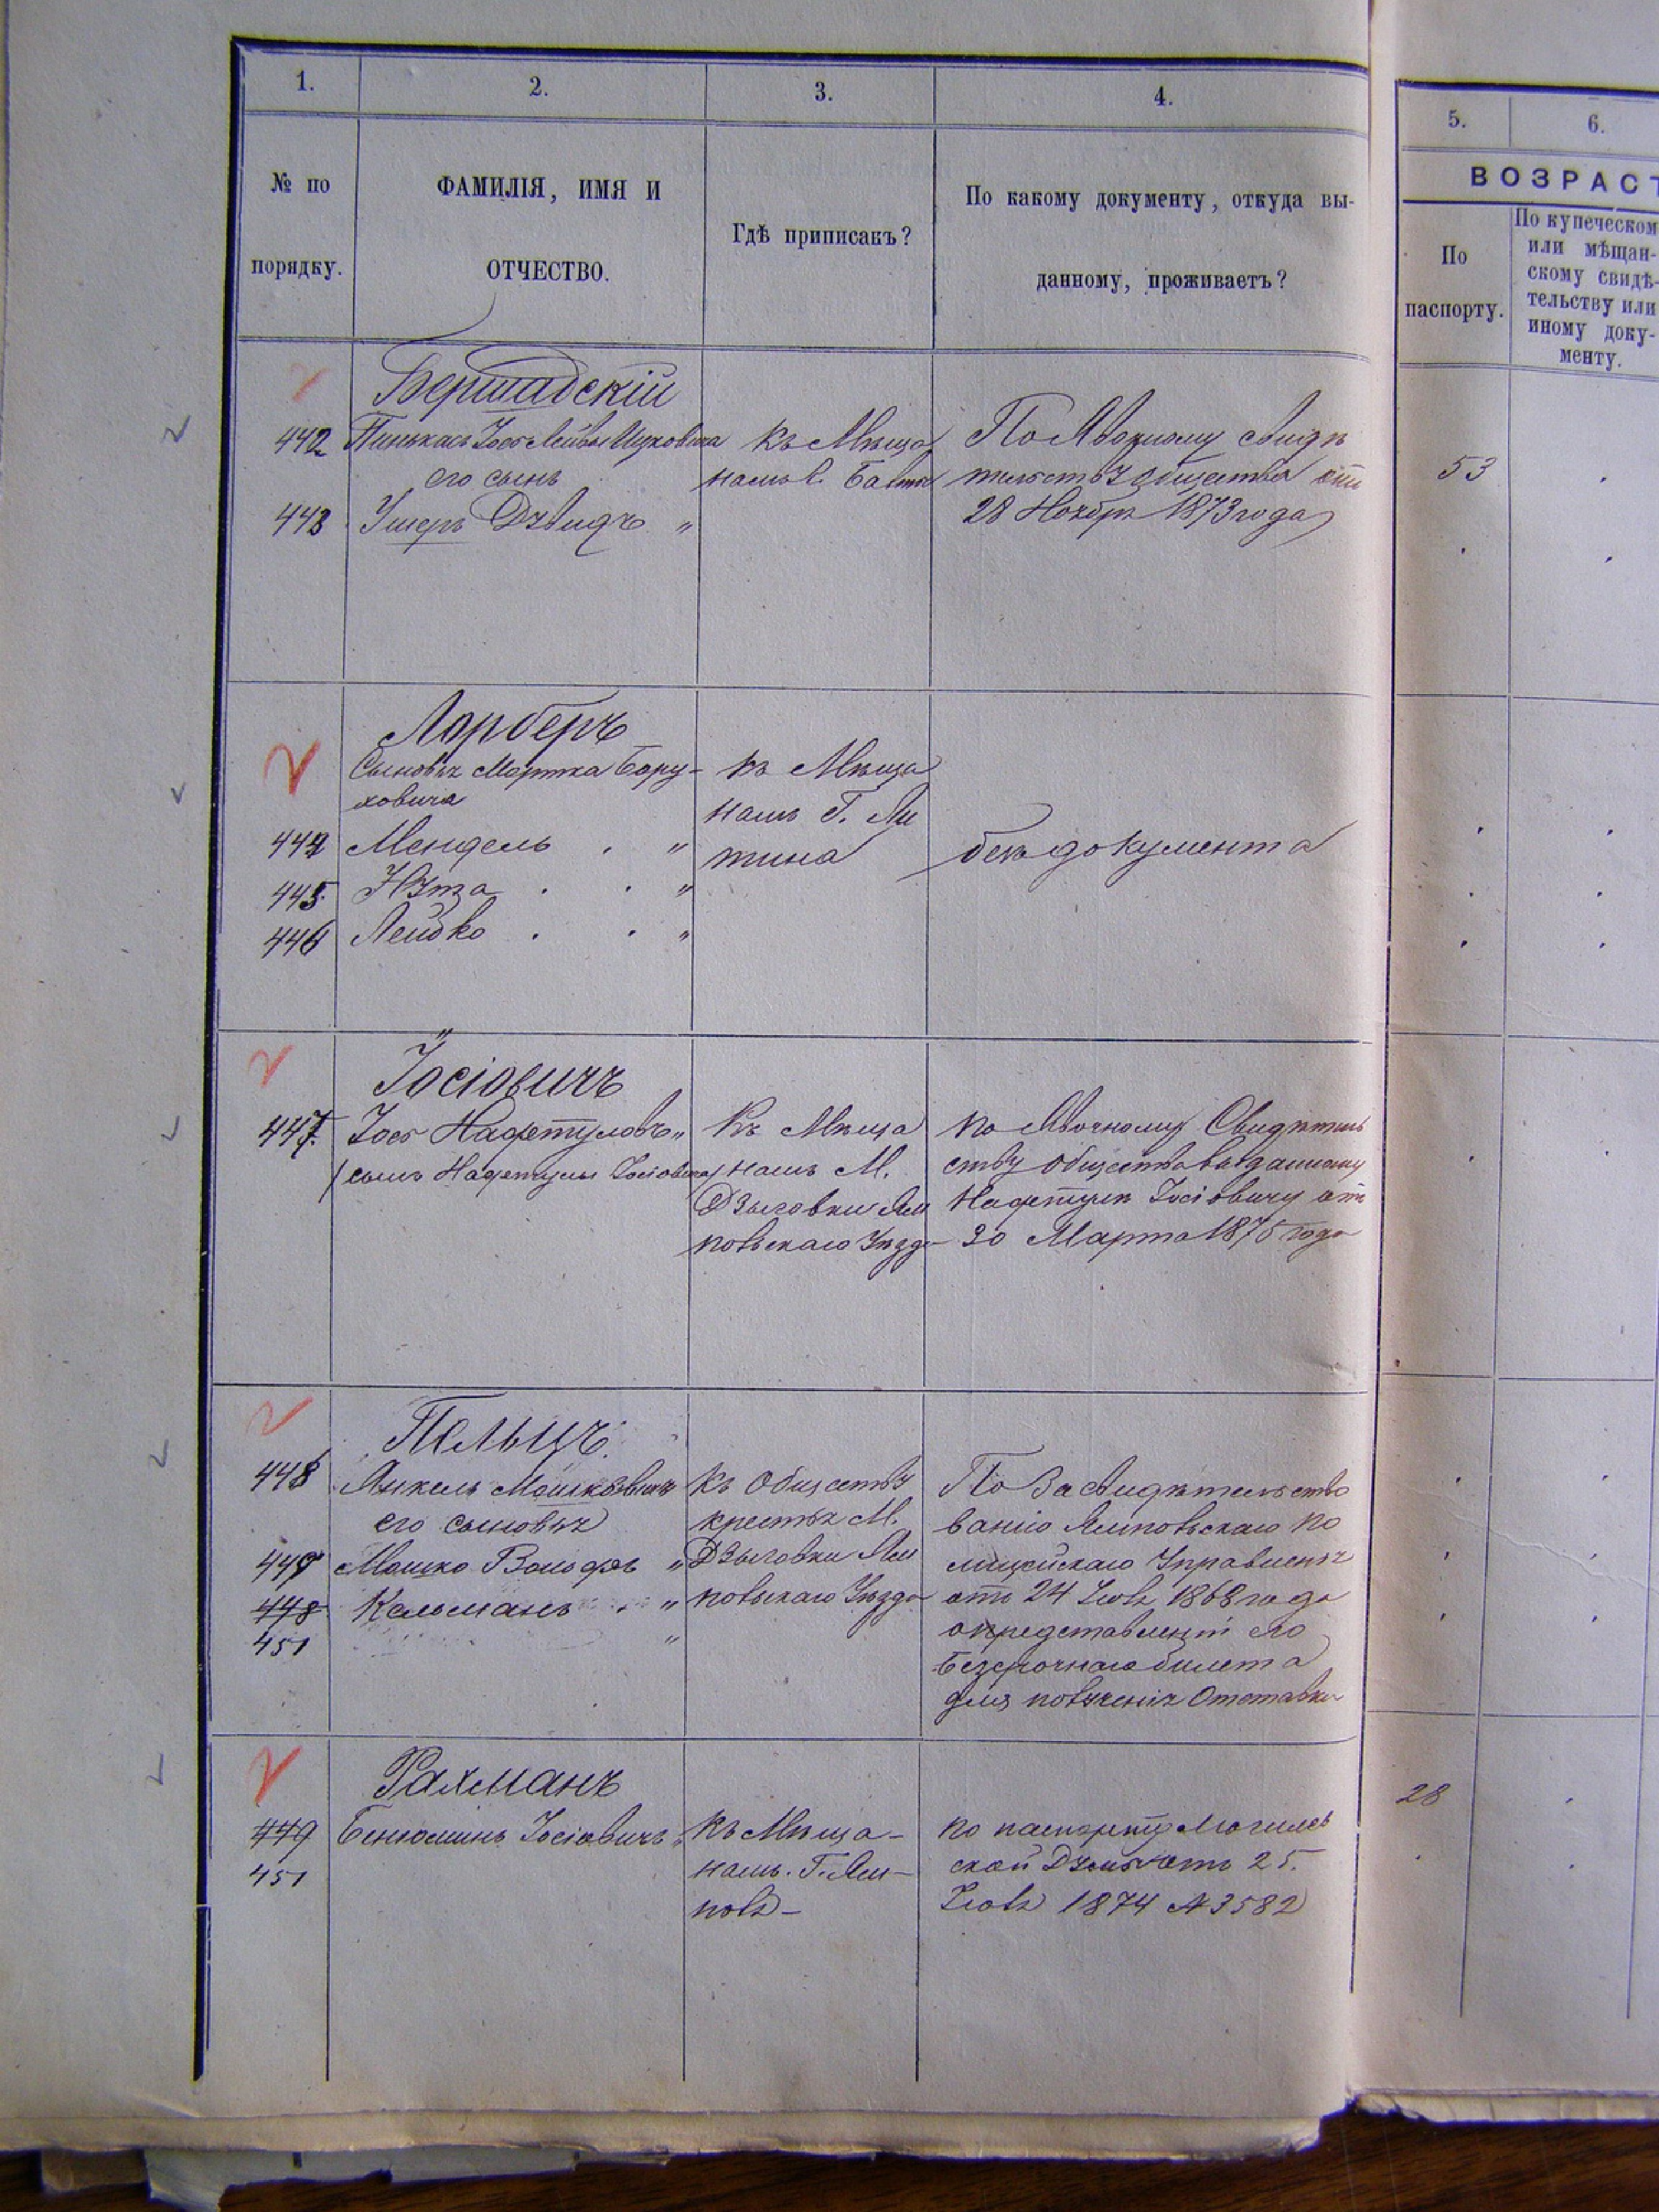 1.
2.
3.
4.
5.
6.
№ по
порядку.
ФАМИЛІЯ, ИМЯ И
ОТЧЕСТВО.
Гдѣ приписанъ?
По какому документу, откуда вы-
данному, проживаетъ?
ВОЗРАСТ
По
паспорту.
По купеческом
или мѣщан-
скому свидѣ-
тельству или
иному доку-
менту.
Бершадскій
442
Пинькасъ Іось Лейвы Ицковича
его сынъ
443
Ушеръ Дувидъ "
къ Мѣща
намъ г. Балты
По Явочному свидѣ
тельству общества отъ
28 Ноября 1873 года
53
Лорберъ
Сыновья Мортка Бору-
ховича
444 Мендель "
445 Нута "
446 Лейбко "
къ Мѣща
намъ Г. Ли
тина
безъ документа
Іосіовичъ
447 Іось Нафтуловъ "
сынъ Нафтулы Іосіовича
Къ Мѣща
намъ М.
Дзыговки Ям
польскаго Уѣзда
по Явочному Свидѣтель
ству общества выданному
Нафтулѣ Іосіовичу отъ
20 Марта 1875 года
Пельцъ
448
Янкель Мошковичъ
его сыновья
449 Мошко Вольфъ "
448 Кельманъ "
451 "
къ Обществу
крестья М.
Дзыговки Ям
польскаго Уѣзда
По Засвидѣтельство
ванію Ямпольскаго По
лицейскаго Управленія
отъ 24 Іюля 1868 года
опредставленіи его
Безсрочнаго билета
для полученія Отставки
Рахманъ
449
451
Бенюминъ Іосіовичъ "
къ Мѣща-
намъ Г. Ям-
поля-
по паспорту Могилев
ской Думы отъ 25.
Іюля 1874 № 3582
28